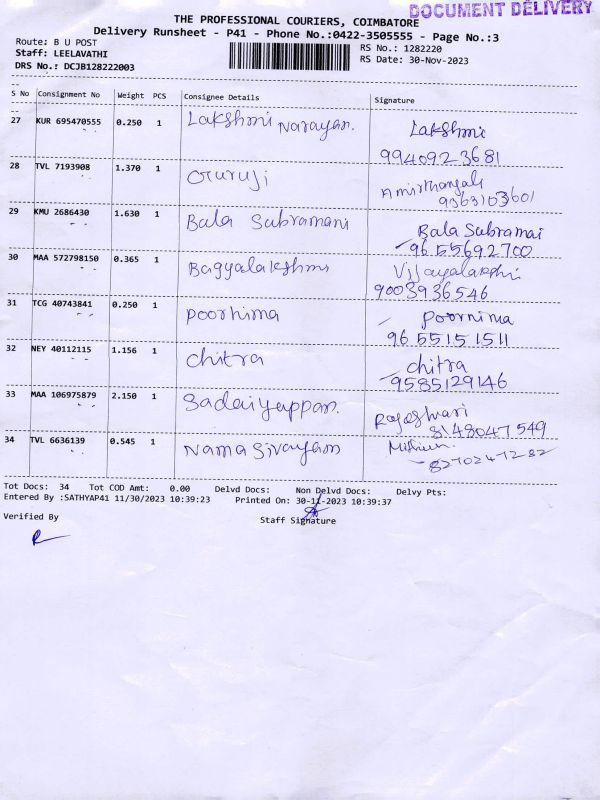 DOCUMENT DELIVERY
THE PROFESSIONAL COURIERS, COIMBATORE
Delivery Runsheet - P41 - Phone No.:0422-3505555 - Page No.:3
Route: B U POST RS No.: 1282220
Staff: LEELAVATHI RS Date: 30-Nov-2023
DRS No.: DCJB128222003
S No Consignment No Weight PCS Consignee Details Signature
27 KUR 695470555 0.250 1 Lakshmi Narayan. Lakshmi
9940923681
28 TVL 7193908 1.370 1 Guruji
9363103601
29 KMU 2686430 1.630 1 Bala Subramani Bala Subramai
9655692700
30 MAA 572798150 0.365 1 Bagyalakshmi
9003936546
31 TCG 40743841 0.250 1 Poornima Poornima
9655151511
32 NEY 40112115 1.156 1 Chitra Chitra
9585129146
33 MAA 106975879 2.150 1 Sadaiyappan. Rajeshwari
8148047549
34 TVL 6636139 0.545 1 Namasivayam
Tot Docs: 34 Tot COD Amt: 0.00 Delvd Docs: Non Delvd Docs: Delvy Pts:
Entered By :SATHYAP41 11/30/2023 10:39:23 Printed On: 30-11-2023 10:39:37
Verified By Staff Signature